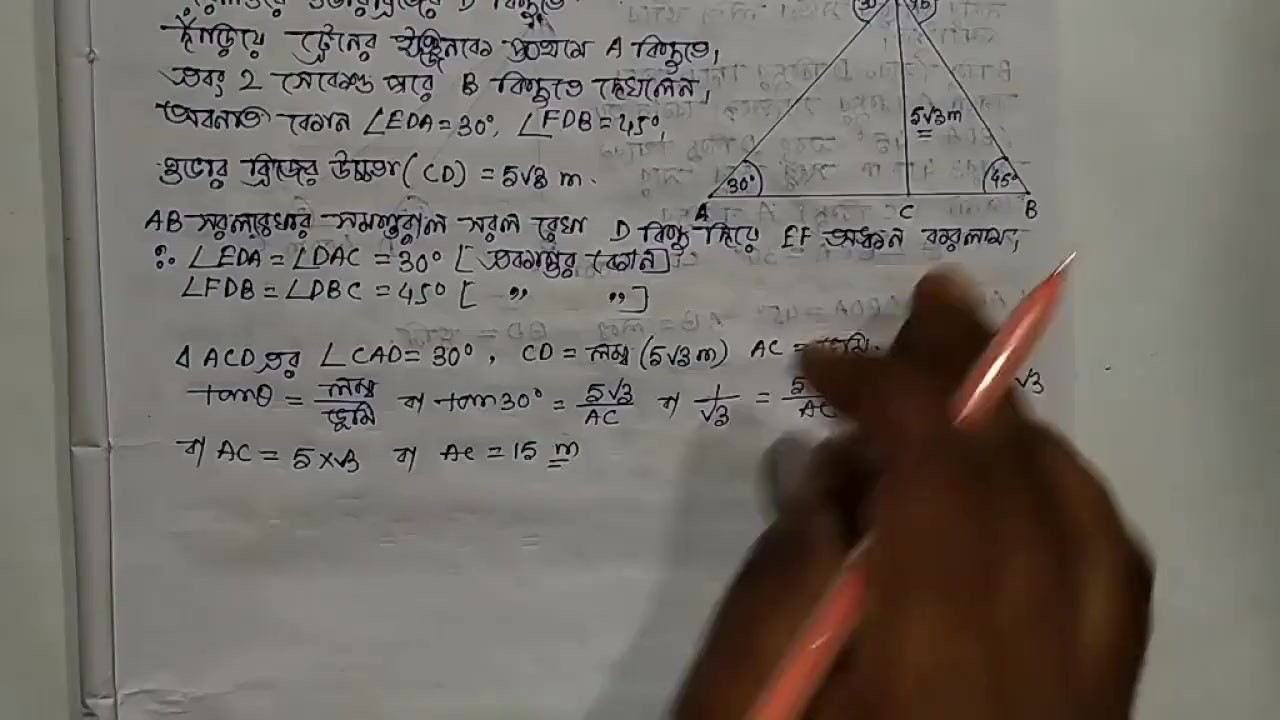 দাঁড়িয়ে ট্রেনের ইঞ্জিনকে প্রথমে A বিন্দুতে,
এবং 2 সেকেন্ড পরে B বিন্দুতে দেখলেন,
অবনতি কোণ ∠EDA=30°, ∠FDB=45°,
ওভার ব্রিজের উচ্চতা (CD) = 5√3 m.
AB সরলরেখার সমান্তরাল সরল রেখা D বিন্দু দিয়ে EF অঙ্কন করলাম,
∴ ∠EDA = ∠DAC = 30° [একান্তর কোণ]
∠FDB = ∠DBC = 45° [ ,, ,, ]
Δ ACD এর ∠CAD = 30°, CD = লম্ব (5√3 m) AC = ভূমি.
tanθ = লম্ব/ভূমি বা tan30° = 5√3/AC বা 1/√3 = 5/AC √3
বা AC = 5×√3 বা AC = 15 m
30° 45°
5√3 m
30° 45°
A C B